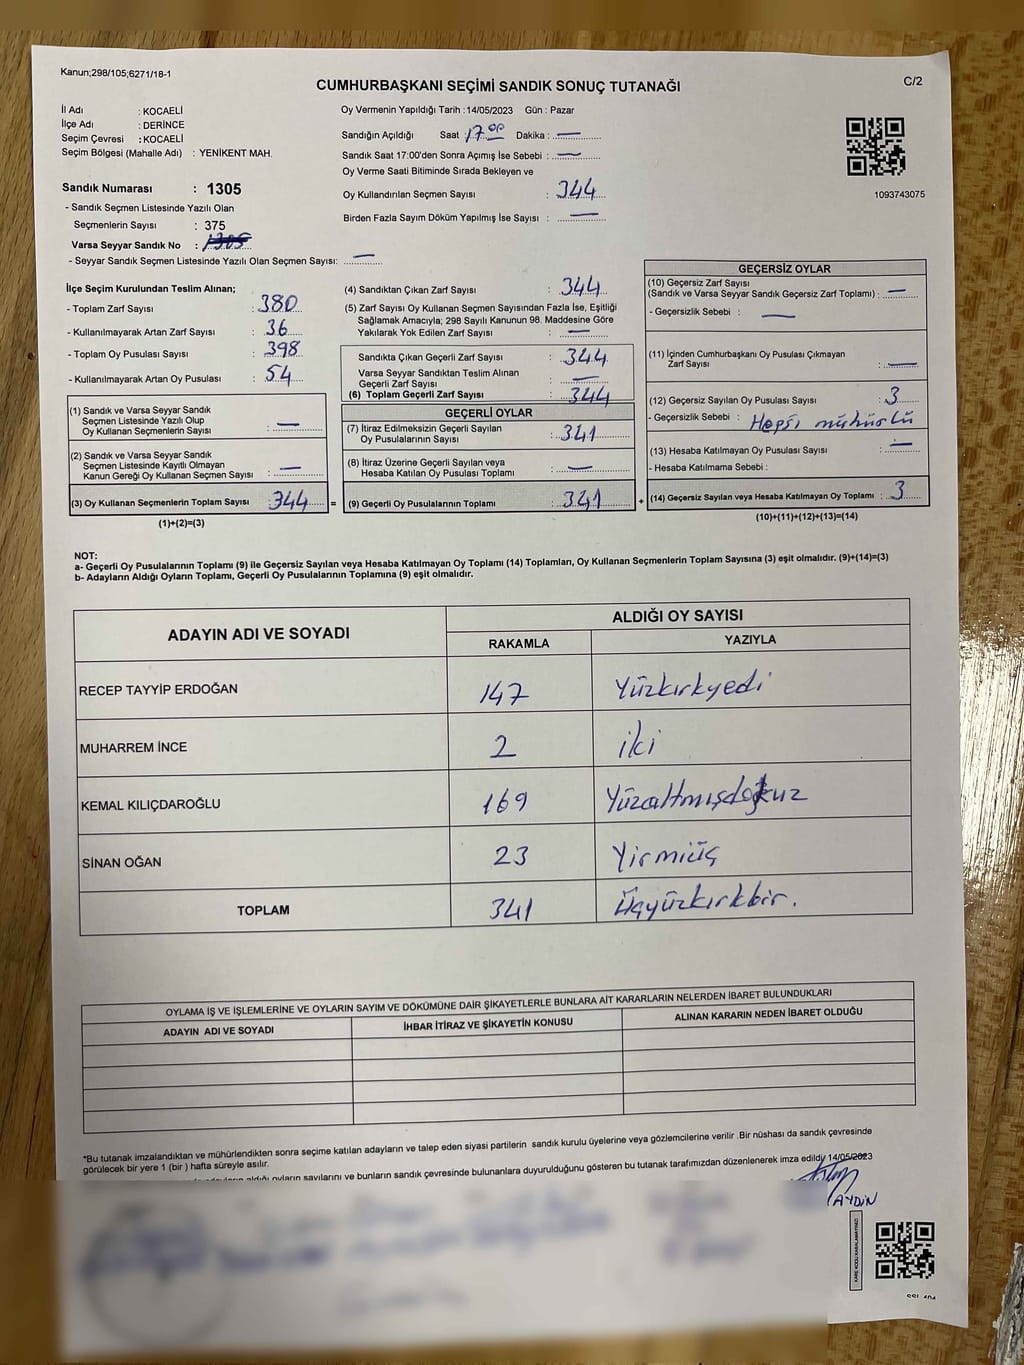 Kanun;298/105;6271/18-1
C/2
CUMHURBAŞKANI SEÇİMİ SANDIK SONUÇ TUTANAĞI
İl Adı : KOCAELİ
İlçe Adı : DERİNCE
Seçim Çevresi : KOCAELİ
Seçim Bölgesi (Mahalle Adı) : YENİKENT MAH.
Sandık Numarası : 1305
- Sandık Seçmen Listesinde Yazılı Olan
Seçmenlerin Sayısı : 375
Varsa Seyyar Sandık No : 1305
- Seyyar Sandık Seçmen Listesinde Yazılı Olan Seçmen Sayısı: —
Oy Vermenin Yapıldığı Tarih :14/05/2023 Gün : Pazar
Sandığın Açıldığı Saat :17.00 Dakika : —
Sandık Saat 17:00'den Sonra Açımış İse Sebebi : —
Oy Verme Saati Bitiminde Sırada Bekleyen ve
Oy Kullandırılan Seçmen Sayısı : 344
Birden Fazla Sayım Döküm Yapılmış İse Sayısı : —
1093743075
İlçe Seçim Kurulundan Teslim Alınan;
- Toplam Zarf Sayısı : 380
- Kullanılmayarak Artan Zarf Sayısı : 36
- Toplam Oy Pusulası Sayısı : 398
- Kullanılmayarak Artan Oy Pusulası : 54
(1) Sandık ve Varsa Seyyar Sandık
Seçmen Listesinde Yazılı Olup
Oy Kullanan Seçmenlerin Sayısı : —
(2) Sandık ve Varsa Seyyar Sandık
Seçmen Listesinde Kayıtlı Olmayan
Kanun Gereği Oy Kullanan Seçmen Sayısı : —
(3) Oy Kullanan Seçmenlerin Toplam Sayısı : 344 =
(1)+(2)=(3)
(4) Sandıktan Çıkan Zarf Sayısı : 344
(5) Zarf Sayısı Oy Kullanan Seçmen Sayısından Fazla İse, Eşitliği
Sağlamak Amacıyla; 298 Sayılı Kanunun 98. Maddesine Göre
Yakılarak Yok Edilen Zarf Sayısı : —
Sandıkta Çıkan Geçerli Zarf Sayısı : 344
Varsa Seyyar Sandıktan Teslim Alınan
Geçerli Zarf Sayısı : —
(6) Toplam Geçerli Zarf Sayısı : 344
GEÇERLİ OYLAR
(7) İtiraz Edilmeksizin Geçerli Sayılan
Oy Pusulalarının Sayısı : 341
(8) İtiraz Üzerine Geçerli Sayılan veya
Hesaba Katılan Oy Pusulası Toplamı : —
(9) Geçerli Oy Pusulalarının Toplamı : 341 +
GEÇERSİZ OYLAR
(10) Geçersiz Zarf Sayısı
(Sandık ve Varsa Seyyar Sandık Geçersiz Zarf Toplamı) : —
- Geçersizlik Sebebi : —
(11) İçinden Cumhurbaşkanı Oy Pusulası Çıkmayan
Zarf Sayısı : —
(12) Geçersiz Sayılan Oy Pusulası Sayısı : 3
- Geçersizlik Sebebi : Hepsi mühürlü
(13) Hesaba Katılmayan Oy Pusulası Sayısı : —
- Hesaba Katılmama Sebebi :
(14) Geçersiz Sayılan veya Hesaba Katılmayan Oy Toplamı : 3
(10)+(11)+(12)+(13)=(14)
NOT:
a- Geçerli Oy Pusulalarının Toplamı (9) ile Geçersiz Sayılan veya Hesaba Katılmayan Oy Toplamı (14) Toplamları, Oy Kullanan Seçmenlerin Toplam Sayısına (3) eşit olmalıdır. (9)+(14)=(3)
b- Adayların Aldığı Oyların Toplamı, Geçerli Oy Pusulalarının Toplamına (9) eşit olmalıdır.
ADAYIN ADI VE SOYADI ALDIĞI OY SAYISI
RAKAMLA YAZIYLA
RECEP TAYYİP ERDOĞAN 147 Yüzkırkyedi
MUHARREM İNCE 2 iki
KEMAL KILIÇDAROĞLU 169 Yüzaltmışdokuz
SİNAN OĞAN 23 Yirmiüç
TOPLAM 341 Üçyüzkırkbir.
OYLAMA İŞ VE İŞLEMLERİNE VE OYLARIN SAYIM VE DÖKÜMÜNE DAİR ŞİKAYETLERLE BUNLARA AİT KARARLARIN NELERDEN İBARET BULUNDUKLARI
ADAYIN ADI VE SOYADI İHBAR İTİRAZ VE ŞİKAYETİN KONUSU ALINAN KARARIN NEDEN İBARET OLDUĞU
*Bu tutanak imzalandıktan ve mühürlendikten sonra seçime katılan adayların ve talep eden siyasi partilerin sandık kurulu üyelerine veya gözlemcilerine verilir .Bir nüshası da sandık çevresinde
görülecek bir yere 1 (bir ) hafta süreyle asılır.
aldığı oyların sayılarını ve bunların sandık çevresinde bulunanlara duyurulduğunu gösteren bu tutanak tarafımızdan düzenlenerek imza edildi. 14/05/2023
AYDIN